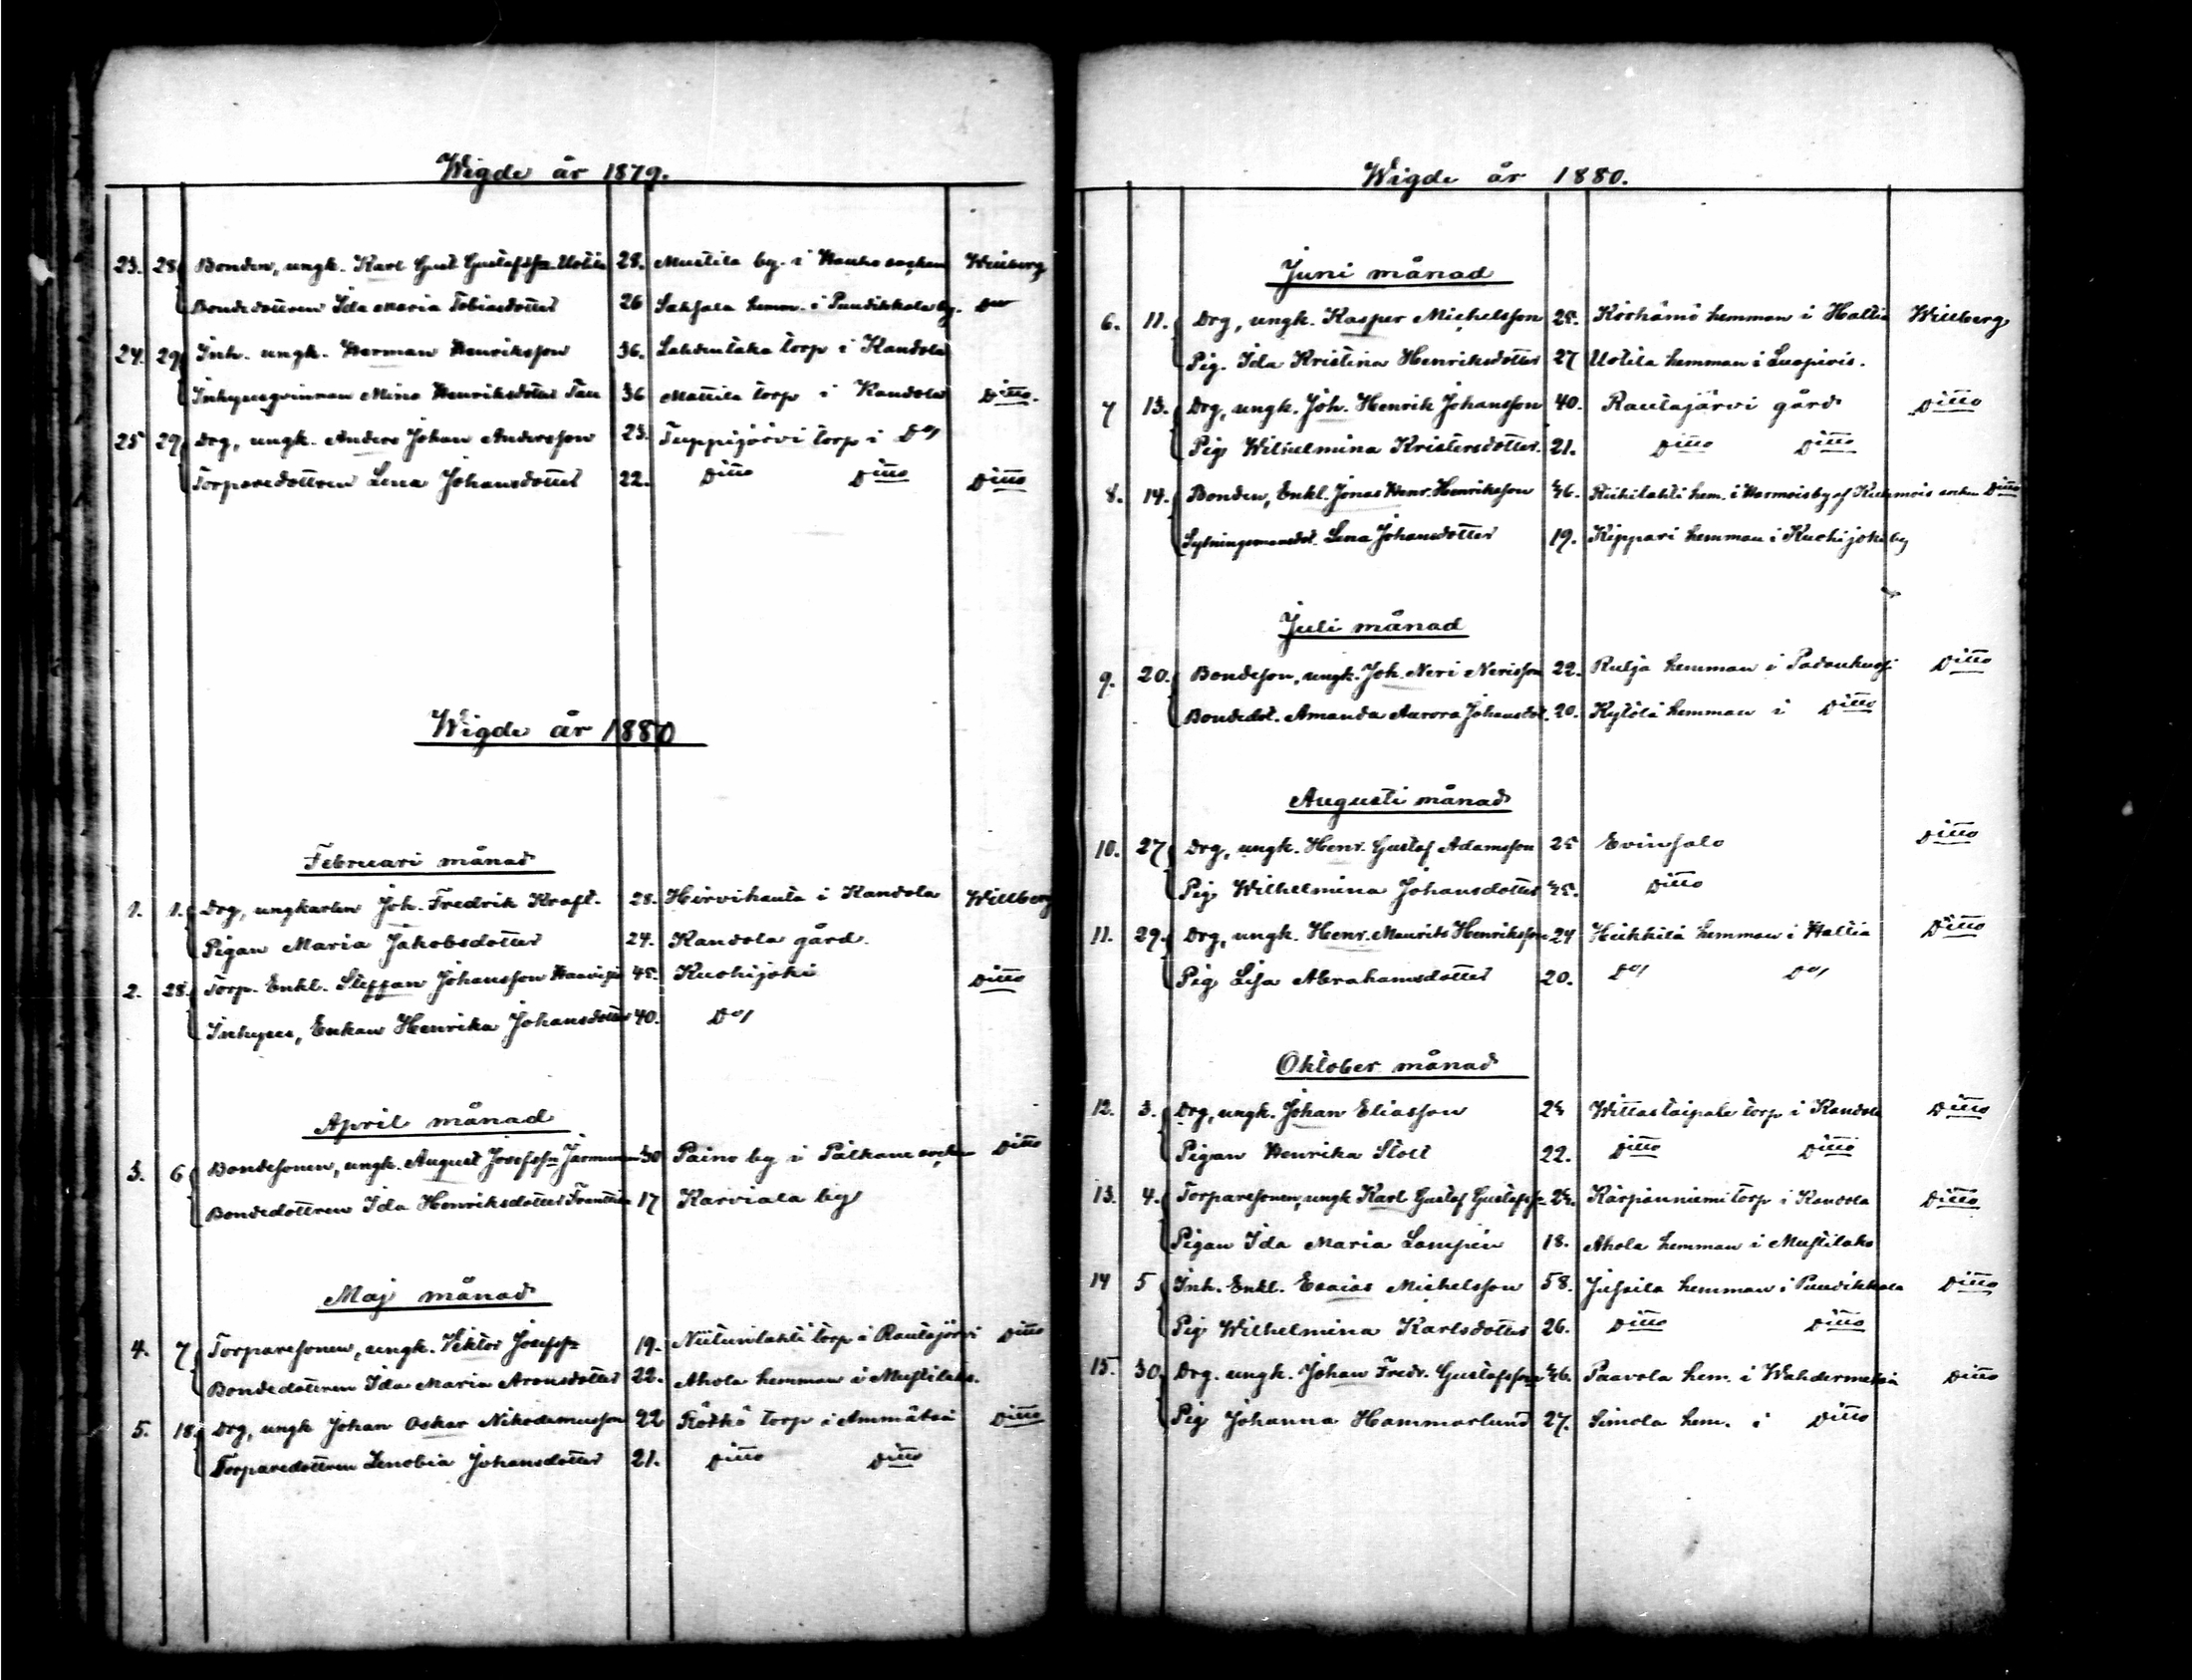 Wigde år 1879.
23. 28 Bonden, ungk. Karl Gust Gustafsson Uotila 28. Mustila by i Hauho socken Willberg
Bondedottren Ida Maria Tobiasdotter 26 Sakjala hemm. i Puudikkola by. Do
24. 29 Inh. ungk. Herman Henriksson 36. Lahdentaka torp i Kandola
Inhyseqvinnan Mina Henriksdotter 36 Mattila torp i Kandola Ditto.
25 29 Drg, ungk. Anders Johan Andersson 23. Teuppijärvi torp i Do
Torparedottren Lena Johansdotter 22. Ditto Ditto Ditto
Wigde år 1880
Februari månad
1. 1. Drg, ungkarlen Joh. Fredrik Kraft. 28. Hirvihauta i Kandola Willberg
Pigan Maria Jakobsdotter 24. Kandola gård.
2. 28. Torp. Enkl. Steffan Johansson 45. Kuohijoki Ditto
Inhyses, Enkan Henrika Johansdotter 40. Do
April månad
3. 6 Bondesonen, ungk. August Josefsson 30 Paino by i Pälkäne socken Ditto
Bondedottren Ida Henriksdotter Franttila 17 Karviala by
Maj månad
4. 7 Torparesonen, ungk. Viktor Josefss 19. Niitunlahti torp i Rautajärvi Ditto
Bondedottren Ida Maria Aronsdotter 22. Ahola hemman i Mustilaks.
5. 18. Drg, ungk Johan Oskar Nikodemusson 22 Körkö torp i Ammätsä Ditto
Torparedottren Zenobia Johansdotter 21. Ditto Ditto
Wigde år 1880.
Juni månad
6. 11. Drg, ungk. Kasper Michelsson 25. Körhämö hemman i Hallia Willberg
Pig. Ida Kristina Henriksdotter 27 Uotila hemman i Luopiois.
7 13. Drg, ungk. Joh. Henrik Johansson 40. Rautajärvi gård Ditto
Pig Wilhelmina Kristersdotter. 21. Ditto Ditto
8. 14. Bonden, Enkl. Jonas Henr. Henriksson 46. Riihilahti hem. i Harmois by af Kuhmois socken Ditto
Sytningsmansdot. Lena Johansdotter 19. Kippari hemman i Kuohijoki by
Juli månad
9. 20. Bondeson, ungk. Joh. Neri Nerisson 22. Rulja hemman i Padankoski Ditto
Bondedot. Amanda Aurora Johansdot. 20. Kytölä hemman i Ditto
Augusti månad
10. 27 Drg, ungk. Henr. Gustaf Adamsson 25 Evinsalo Ditto
Pig Wilhelmina Johansdotter 45. Ditto
11. 29. Drg, ungk. Henr. Maurits Henriksson 24 Heikkilä hemman i Hallia Ditto
Pig Lisa Abrahamsdotter 20. Do Do
Oktober månad
12. 3. Drg, ungk. Johan Eliasson 24 Wittastaipale torp i Kandola Ditto
Pigan Henrika Stolt 22. Ditto Ditto
13. 4. Torparesonen, ungk Karl Gustaf Gustafss 24. Kärpänniemi torp i Kandola Ditto
Pigan Ida Maria Lampén 18. Ahola hemman i Mustilaks
14 5 Inh. Enkl. Esaias Michelsson 58. Jussila hemman i Puudikkola Ditto
Pig Wilhelmina Karlsdotter 26. Ditto Ditto
15. 30. Drg. ungk. Johan Fredr. Gustafsson 46. Paavola hem. i Wahdermetsä Ditto
Pig Johanna Hammarlund 27. Simola hem. i Ditto